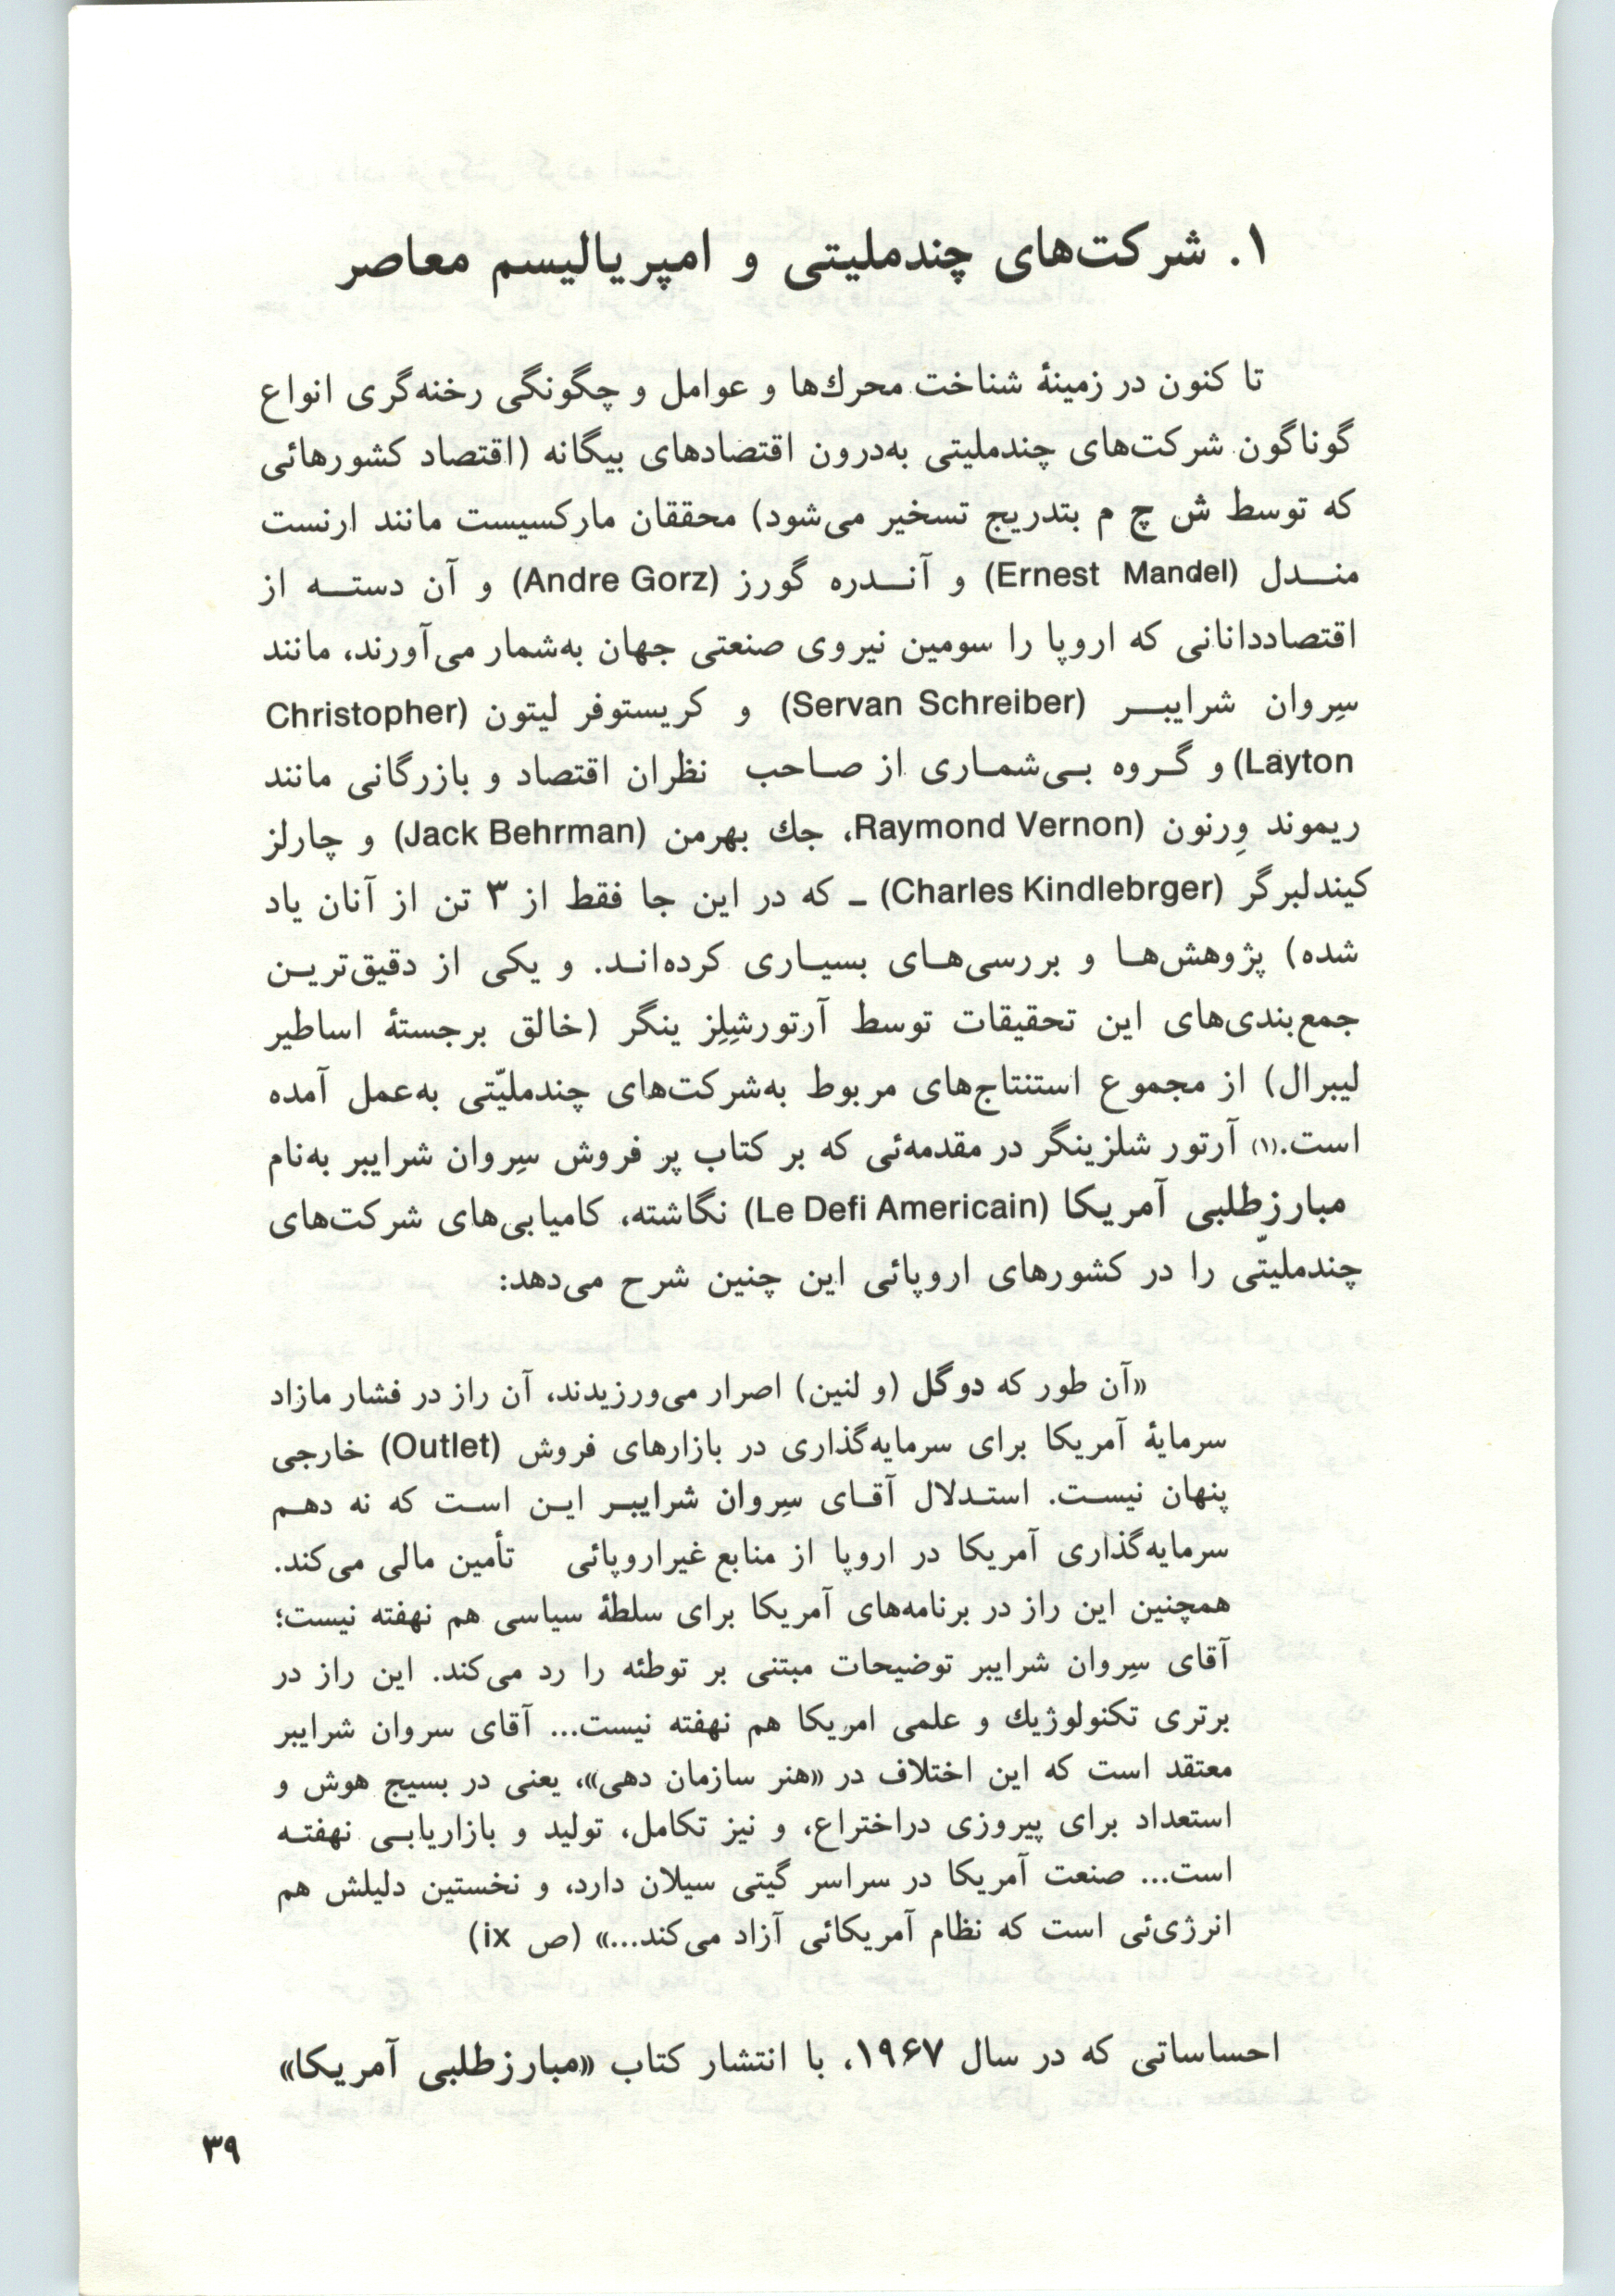 ۱. شرکت‌های چندملیتی و امپریالیسم معاصر
تا کنون در زمینهٔ شناخت محرك‌ها و عوامل و چگونگی رخنه‌گری انواع
گوناگون شرکت‌های چندملیتی به‌درون اقتصادهای بیگانه (اقتصاد کشورهائی
که توسط ش چ م بتدریج تسخیر می‌شود) محققان مارکسیست مانند ارنست
منـــدل (Ernest Mandel) و آنـــدره گورز (Andre Gorz) و آن دستـــه از
اقتصاددانانی که اروپا را سومین نیروی صنعتی جهان به‌شمار می‌آورند، مانند
سِروان شرایبـــر (Servan Schreiber) و کریستوفر لیتون (Christopher
Layton) و گــروه بــی‌شمـاری از صـاحب نظران اقتصاد و بازرگانی مانند
ریموند وِرنون (Raymond Vernon، جك بهرمن (Jack Behrman) و چارلز
کیندلبرگر (Charles Kindlebrger) ـ که در این جا فقط از ۳ تن از آنان یاد
شده) پژوهش‌هـا و بررسی‌هـای بسیـاری کرده‌انـد. و یکی از دقیق‌تریـن
جمع‌بندی‌های این تحقیقات توسط آرتورشِلِز ینگر (خالق برجستهٔ اساطیر
لیبرال) از مجموع استنتاج‌های مربوط به‌شرکت‌های چندملیّتی به‌عمل آمده
است.(۱) آرتور شلزینگر در مقدمه‌ئی که بر کتاب پر فروش سِروان شرایبر به‌نام
مبارزطلبی آمریکا (Le Defi Americain) نگاشته، کامیابی‌های شرکت‌های
چندملیتّی را در کشورهای اروپائی این چنین شرح می‌دهد:
«آن طور که دوگل (و لنین) اصرار می‌ورزیدند، آن راز در فشار مازاد
سرمایهٔ آمریکا برای سرمایه‌گذاری در بازارهای فروش (Outlet) خارجی
پنهان نیسـت. استـدلال آقـای سِروان شرایبـر ایـن اسـت که نه دهـم
سرمایه‌گذاری آمریکا در اروپا از منابع غیراروپائی تأمین مالی می‌کند.
همچنین این راز در برنامه‌های آمریکا برای سلطهٔ سیاسی هم نهفته نیست؛
آقای سِروان شرایبر توضیحات مبتنی بر توطئه را رد می‌کند. این راز در
برتری تکنولوژیك و علمی امریکا هم نهفته نیست... آقای سروان شرایبر
معتقد است که این اختلاف در «هنر سازمان دهی»، یعنی در بسیج هوش و
استعداد برای پیروزی دراختراع، و نیز تکامل، تولید و بازاریابـی نهفتـه
است... صنعت آمریکا در سراسر گیتی سیلان دارد، و نخستین دلیلش هم
انرژی‌ئی است که نظام آمریکائی آزاد می‌کند...» (ص ix)
احساساتی که در سال ۱۹۶۷، با انتشار کتاب «مبارزطلبی آمریکا»
۳۹